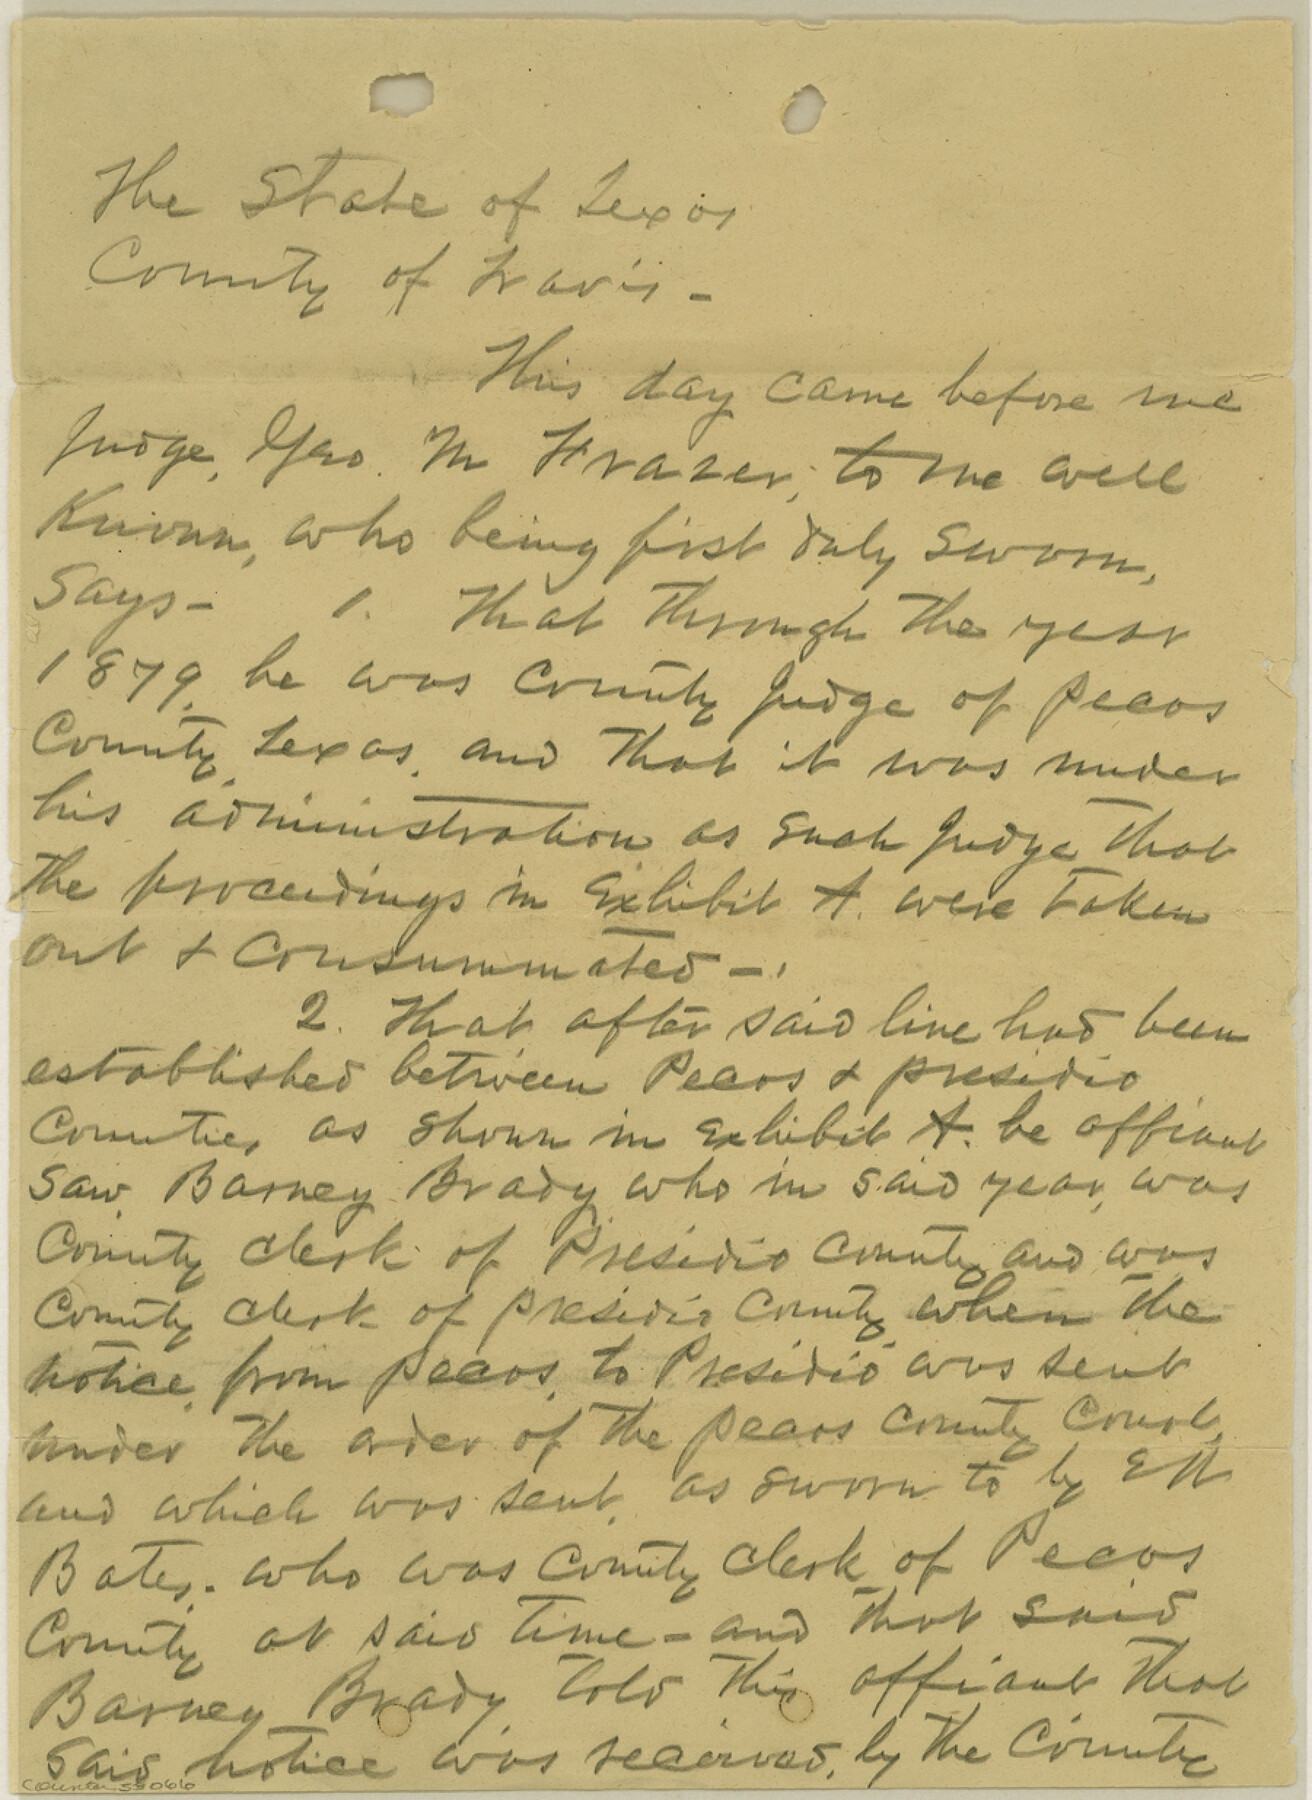 The State of Texas
County of Travis -
This day came before me
Judge, Geo. M Frazer, to me well
Known, who being first duly sworn,
Says - 1. That through the year
1879, he was County Judge of Pecos
County, Texas, and that it was under
his administration as such Judge that
the proceedings in Exhibit A. were taken
out & consummated -
2. That after said line had been
established between Pecos & Presidio
Counties, as shown in Exhibit A. he affiant
saw, Barney Brady, who in said year, was
County Clerk of Presidio County and was
County Clerk of Presidio County when the
notice, from Pecos, to Presidio was sent
under the order of the Pecos County Court,
and which was sent, as sworn to by
Bates. who was County Clerk of Pecos
County at said time - and that said
Barney Brady, told this affiant that
said notice was received, by the County
Counter 55066